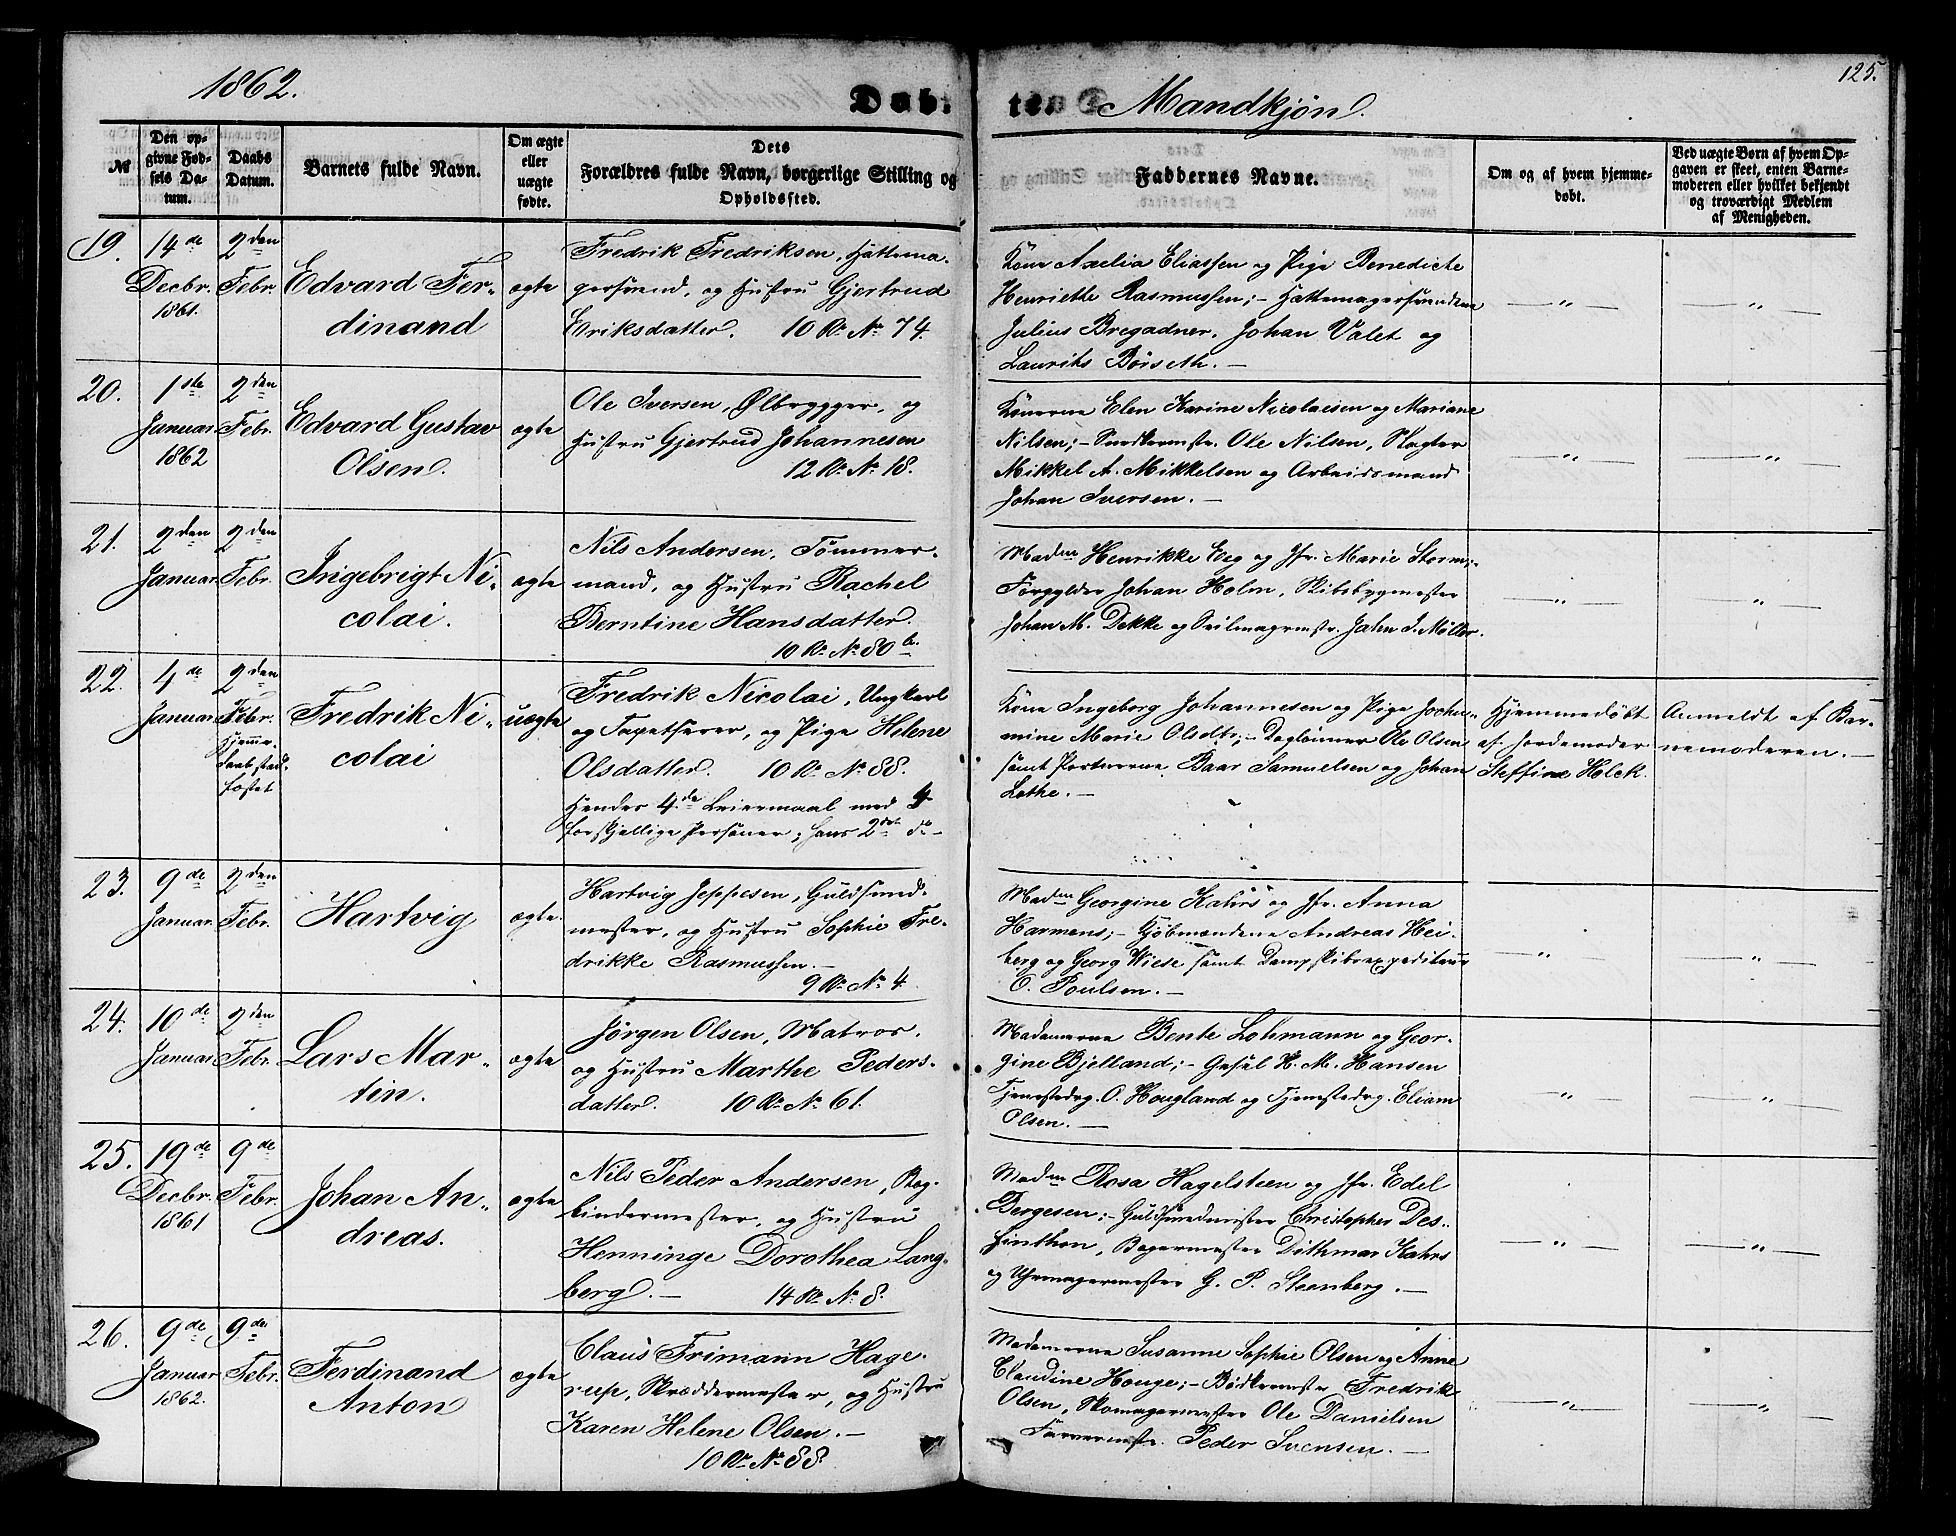 1862.
Døbte.
Mandkjøn.
125.
№
Den opgivne Fødsels Datum.
Daabs Datum.
Barnets fulde Navn.
Om ægte eller uægte fødte.
Dets Forældres fulde Navn, borgerlige Stilling og Opholdssted.
Faddernes Navne.
Om og af hvem hjemmedøbt.
Ved uægte Børn af hvem Opgaven er skeet, enten Barnemoderen eller hvilket bekjendt og troværdigt Medlem af Menigheden.
19.
14de
Decbr.
1861.
2den
Febr.
Edvard Fer-
dinand
ægte
Fredrik Fredriksen, Hattema-
gersvend, og Hustru Gjertrud
Eriksdatter. 10 Rd. No 74.
Kone Axelia Eliassen og Pige Benedicte
Henriette Rasmussen; - Hattemagersvendene
Julius Bregadner, Johan Valet og
Laurits Børseth. -
— „ —
— „ —
20.
1ste
Januar
1862
2den
Febr.
Edvard Gustav
Olsen.
ægte
Ole Iversen, Ølbrygger, og
Hustru Gjertrud Johannesen
12 Rd. No 18.
Konerne Elen Karine Nicolaisen og Mariane
Nilsen; - Snedkermstr. Ole Nilsen, Slagter
Mikkel A. Mikkelsen og Arbeidsmand
Johan Iversen. -
— „ —
— „ —
21.
2den
Januar
2den
Febr.
Ingebrigt Ni-
colai.
ægte
Nils Andersen, Tømmer-
mand, og Hustru Rachel
Berntine Hansdatter.
10 Rd. No 80 b.
Madm Henrikke Eeg og Jfr. Marie Storm;-
Forgylder Johan Holm, Skibsbygmester
Johan M. Dekke og Seilmagermstr. Jahn J. Møller.
— „ —
— „ —
22.
4de
Januar
2den
Febr.
Hjemme-
daab stad-
fæstet
Fredrik Ni-
colai
uægte
Fredrik Nicolai, Ungkarl
og Tapetserer, og Pige Helene
Olsdatter. 10 Rd. No 88.
Hendes 4de Leiermaal med 4
forskjellige Personer; hans 2det do -
Kone Ingeborg Johannesen og Pige Jochu-
mine Marie Olsdtr; - Daglønner Ole Olsen
samt Portnerne Baar Samuelsen og Johan
Lothe. -
Hjemmedøbt
af Jordemoder
Steffine Holck.
Anmeldt af Bar-
nemoderen. -
23.
9de
Januar
2den
Febr.
Hartvig
ægte.
Hartvig Jeppesen, Guldsmed-
mester, og Hustru Sophie Fre-
drikke Rasmussen. -
9 Rd. No 4.
Madm Georgine Kahrs og Jfr. Anna
Harmens; - Kjøbmændene Andreas Hei-
berg og Georg Wiese samt Dampskibsexpediteur
C. Poulsen. -
— „ —
— „ —
24.
10de
Januar
2den
Febr.
Lars Mar-
tin.
ægte
Jørgen Olsen, Matros.
og Hustru Marthe Peders-
datter. 10 Rd. No 61.
Madamerne Bente Lohmann og Geor-
gine Bjelland; - Gesel H. M. Hansen
Tjenestedrg. O. Hougland og Tjenestedrg. Eliam
Olsen. -
— „ —
— „ —
25.
19de
Decbr.
1861
9de
Febr.
Johan An-
dreas.
ægte
Nils Peder Andersen, Bog-
bindermester, og Hustru
Henninge Dorothea Lang-
berg. - 14 Rd. No 8.
Madm Rosa Hagelsteen og Jfr. Edel
Bergesen; - Guldsmedmester Christopher Des-
hinthon, Bagermester Dithmar Kahrs
og Uhrmagermester G. P. Steenberg. -
— „ —
— „ —
26.
9de
Januar
1862.
9de
Febr.
Ferdinand
Anton
ægte
Claus Frimann Hage-
rup, Skræddermester, og Hustru
Karen Helene Olsen. -
10 Rd. No 88.
Madamerne Susanne Sophie Olsen og Anne
Claudine Houge; - Bødkermstr Fredrik
Olsen, Skomagermester Ole Danielsen
Farvermstr. Peder Svensen. -
— „ —
— „ —